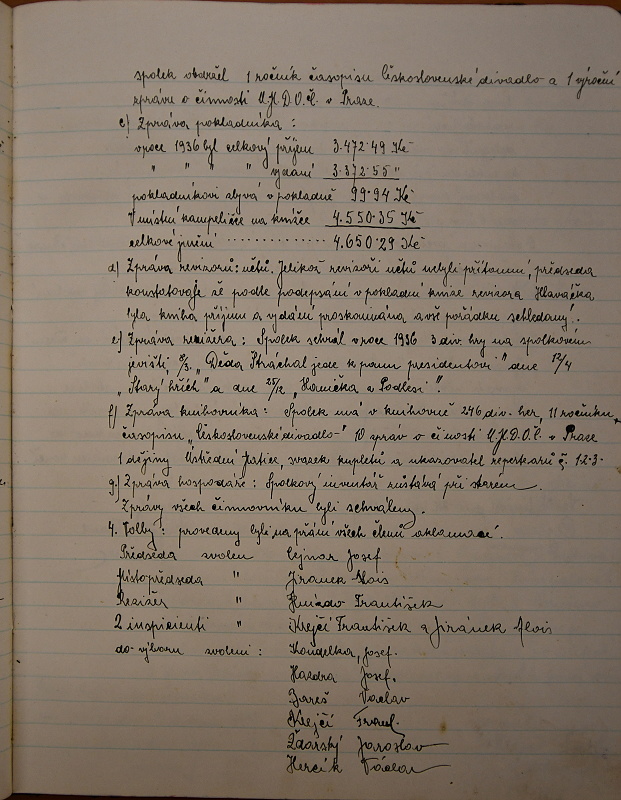 spolek obdržel 1 ročník časopisu Československé divadlo a 1 výroční
zprávu o činnosti Ú.M.D.O.Č. v Praze.
c) Zpráva pokladníka :
v roce 1936 byl celkový příjem 3.472·49 Kč
" " " " vydaní 3.372·55 "
pokladníkovi zbývá v pokladně 99·94 Kč
V místní kampeličce na knížce 4.550·35 Kč
celkové jmění .............. 4.650·29 Kč
d) Zpráva revizorů: účtů. Jelikož revizoři účtů nebyli přítomni, předseda
konstatovaje že podle podepsání v pokladní knize revizora Hlaváčka
byla kniha příjmu a vydání proskoumána a vše pořádku schledaný.
e) Zpráva režiséra : Spolek sehrál v roce 1936 3 div. hry na spolkovém
jevišti, 8/3. „Děda Stráchal jede k panu presidentovi" dne 12/4
„Starý hřích" a dne 25/12 „Hanička z Podlesí".
f) Zpráva knihovníka : Spolek má v knihovně 246 div. her, 11 ročníku
časopisu „Československé divadlo" 10 zpráv o činosti Ú.M.D.O.Č. v Praze
1 dějiny Ústřední Matice, svazek kupletů a ukazovatel repertoarů č. 1·2·3·
g) Zpráva hospodáře : Spolkový inventář zůstává při starém.
Zprávy všech činnovníku byli schváleny.
4. Volby : provedeny byli na přání všech členů aklamací.
Předseda zvolen Cejnar Josef
Místopředseda " Jiranek Alois
Režisér " Hnízdo František
2 inspicienti " Krejčí František a Jiránek Alois
do výboru zvoleni : Koudelka, Josef.
Josef.
Bareš Vaclav
Krejčí Frant.
Žďarský Jaroslav
Hercík Václav